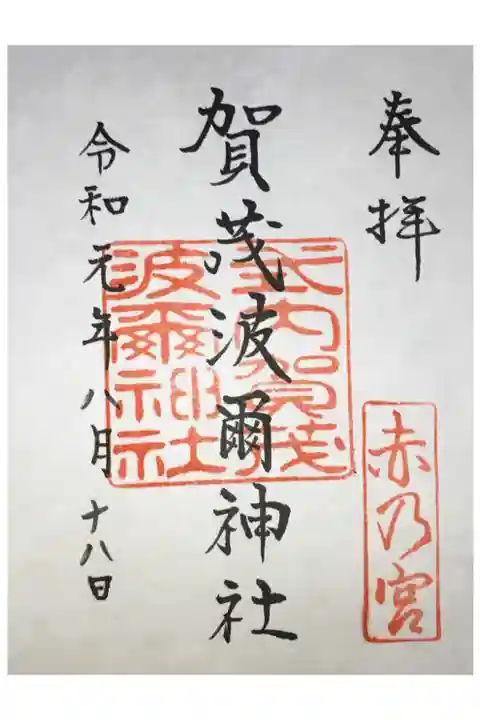 奉拝
賀茂波爾神社
令和元年八月十八日
式内賀茂波爾神社
赤乃宮